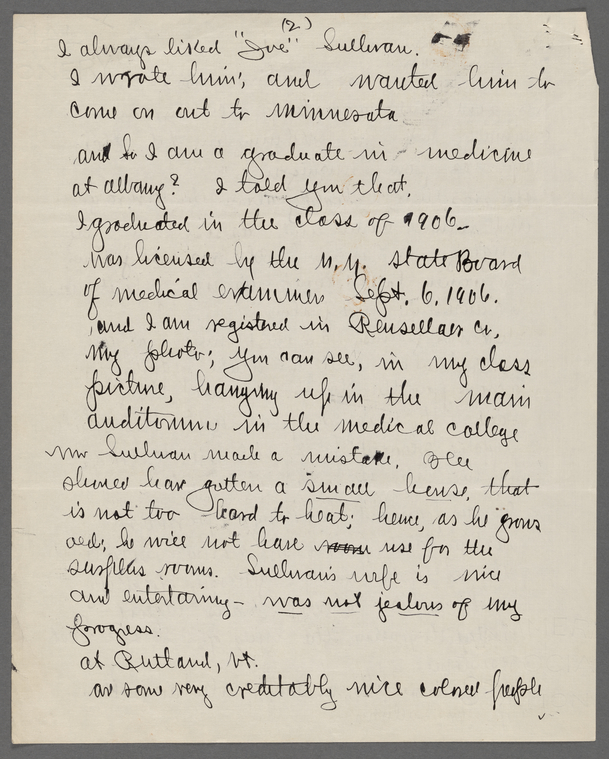 (2)
I always liked "Joe" Sullivan.
I wrote him; and wanted him to
come on out to Minnesota
and so I am a graduate in medicine
at albany? I told you that.
I graduated in the class of 1906_
was licensed by the N.Y. State Board
of medical examiners Sept. 6. 1906.
and I am registered in Rensellaer Co,
My photo; you can see, in my class
picture, hanging up in the main
auditorium in the medical college
Mr Sullivan made a mistake. He
should have gotten a small house, that
is not too hard to heat; hence, as he grows
old; he will not have room use for the
surplus rooms. Sullivan's wife is nice
and entertaining – was not jealous of my
progress.
at Rutland, Vt.
are some very creditably nice colored people